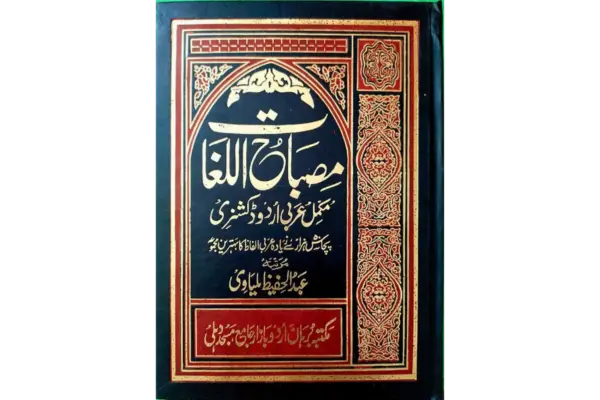 مصباح اللغات
مکمل عربی اردو ڈکشنری
پچاس ہزار سے زیادہ عربی الفاظ کا بہترین مجموعہ
مرتبہ
عبدالحفیظ بلیاوی
مکتبہ برہان اردو بازار جامع مسجد دہلی